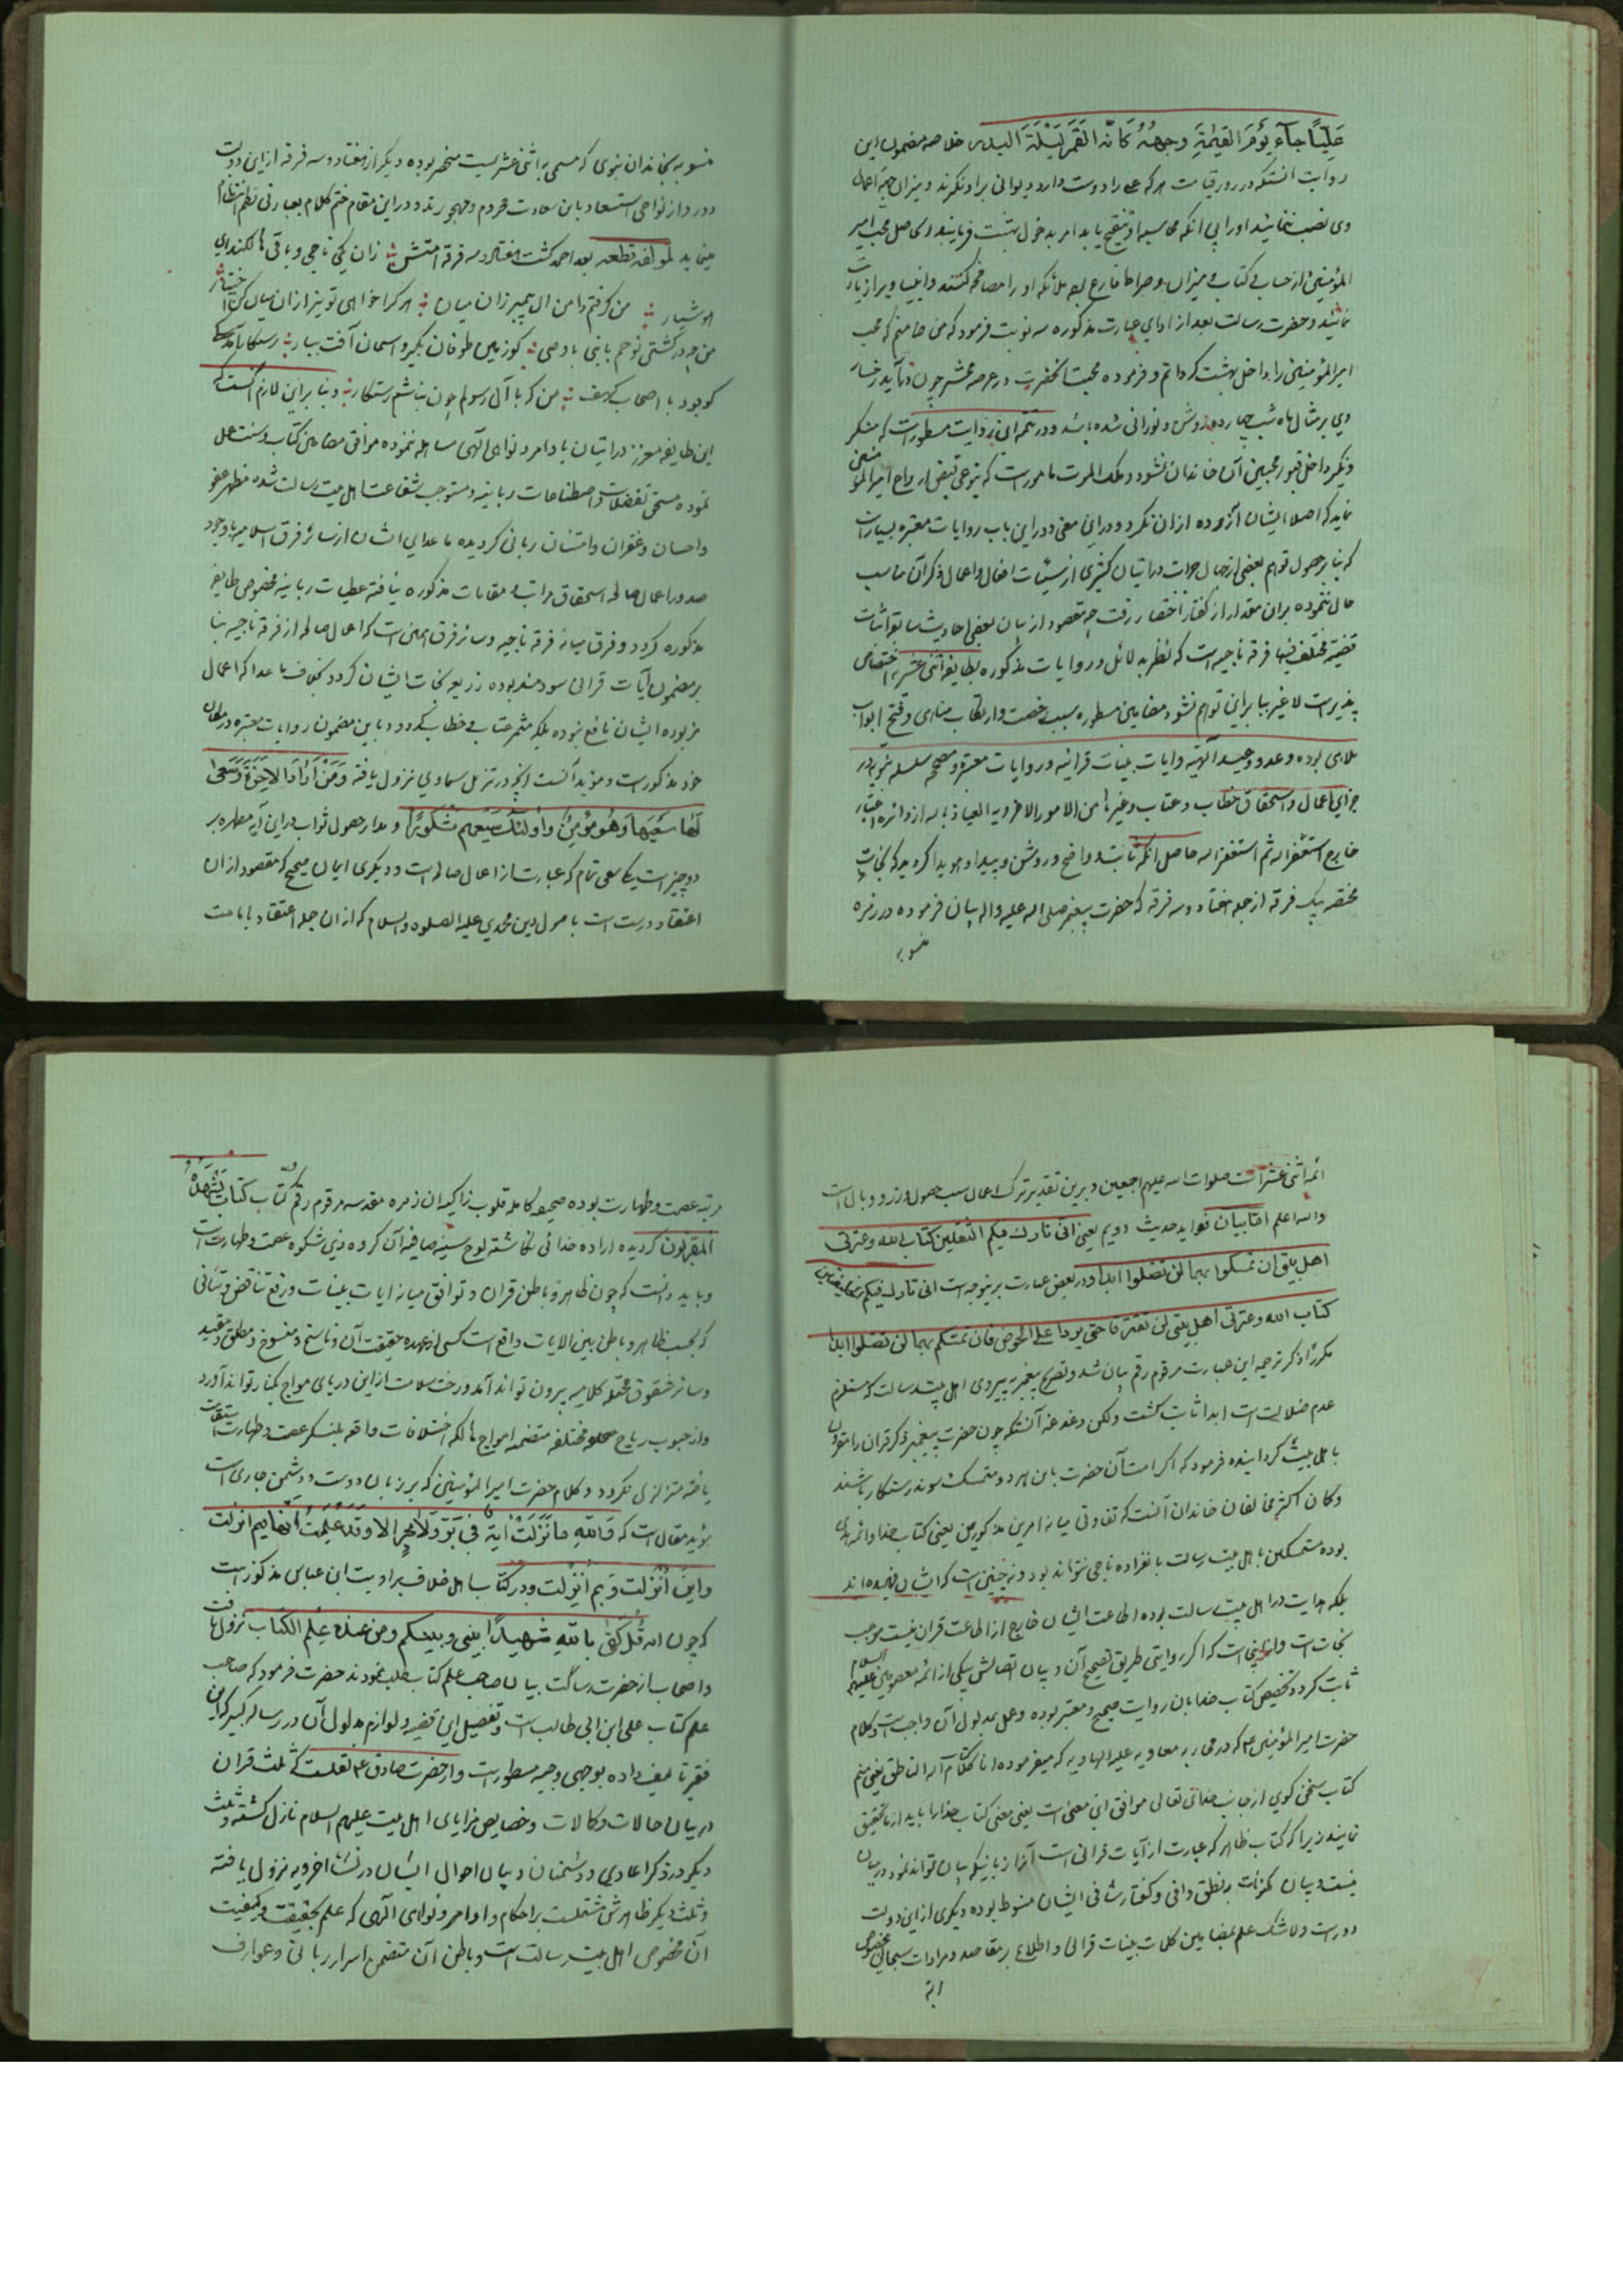 عَلِیّاً جآءَ یَوْمَ القیٰمَةِ وجهُهُ کَانّه القَمَر لَیْلَةَ البدر خلاصه مضمون این
روایت انستکه در روز قیامت هر که علی را دوست دارد دیوانی برا و نکرند و میزان جهة اعمال
وی نصب ننمایند او را بی انکه محاسبه او تنقیح یابد امر بدخول بهشت فرمایند حاصل محب امیر
المؤمنین از حساب کتاب و میزان و صراط فارغ بوده ملائکه او را مصافحه کنند و انبیا ویرا زیارت
نمایند و حضرت رسالت بعد از ادای عبارت مذکوره سه نوبت فرمود که من ضامنم که محب
امیرالمؤمنین را داخل بهشت کردانم و فرموده محب آنحضرت در عرصه محشر چون درآید رخسار
وی بر مثال ماه شب چهارده روشن و نورانی شده باشد و در تتمه این روایت مسطور است که منکر
و نکیر داخل قبور محبین آن خاندان نشود و ملک الموت مامور است که بنوعی قبض ارواح محبین امیرالمؤ
نماید که اصلا ایشان آزرده از ان نکرد و در این معنی و در این باب روایات معتبره بسیار است
که بنابر حصول توهم بعضی از جهال جرات در اتیان کثیری از سیئات افعال و اعمال ذکر آن مناسب
حال ننموده بر ان مقدار از گفتار اختصار رفت چه مقصود از بیان بعضی احادیث سابقه اثبات
قضیه مختلف فیها فرقه ناجیه است که نظر بدلائل و روایات مذکوره بطایفه اثنی عشریه اختصاص
پذیر است لا غیر بنا برین توهم نشود مضامین مسطوره سبب رخصت وارتکاب مناهی و فتح ابواب
ملاهی بوده وعد و وعید آلهیه و ایات بینات قرانیه و روایات معتبره و مصححه سلسله نبویه در
جزای اعمال و استحقاق خطاب و عتاب و غیرها من الامور الاخرویه العیاذ بالله از دائره اعتبار
خارج استغفر الله ثم استغفر الله حاصل انکه ثابت و واضح و روشن و پیدا و هویدا کردید که نجات
مختصه یک فرقه از جمله هفتاد و سه فرقه که حضرت پیغمبر صلی الله علیه واله بیان فرموده در زمره
منسوبه
منسوبه بخاندان نبوی که مسمی به اثنی عشریست منحصر بوده و دیگر از هفتاد و سه فرقه از این دولت
دور و از نواحی استسعاد باین سعادت محروم و مهجورند و در این مقام ختم کلام بعبارتی نظم انتظام
مینماید لمولفه قطعه بعد احمد گشت هفتاد و سه فرقه امتش زان یکی ناجی و باقی هالکند ای
هوشیار من گرفتم دامن ال پیمبر زان میان هر کرا خواهی تو نیز از ان میان کن اختیار
من چو در کشتی نوحم با نبی با وصی کو زمین طوفان بگیر و اسمان آفت ببار رستکار آمد سگی
کو بود با اصحاب کهف من که با آل رسولم چون نباشم رستکار و بنا براین لازم آنست که
این طایفه معزز در اتیان باوامر و نواهی آلهی مساهله ننموده موافق مضامین کتاب و سنت عمل
نموده مستحق تفضلات و اصطناعات ربانیه و مستوجب شفاعت اهل بیت رسالت شده مظهر عفو
و احسان و غفران و امتنان ربانی کردیده ما عدای ایشان از سائر فرق اسلامیه با وجود
صدور اعمال صالحه استحقاق مراتب و مقامات مذکوره نیافته عطیات ربانیه مخصوص طایفه
مذکوره کردد و فرق میانه فرقه ناجیه و سائر فرق همین است که اعمال صالحه از فرقه ناجیه بنا
بر مضمون آیات قرانی سودمند بوده ذریعه نجات ایشان کردد بخلاف ما عدا که اعمال
مزبوره ایشان نافع نبوده بلکه مثمر عتاب و خطاب کردد و باین مضمون روایات معتبره در مظان
خود مذکور است و مؤید آنست انچه در تنزیل سماوی نزول یافته وَمَنْ اَرَادَ الاخِرَةَ وَسَعیٰ
لَهَا سَعْیَهَا وَهُوَ مُؤْمِنٌ فاُولئِکَ کَانَ سَعْیُهُم مَشْکُوراً و مدار حصول ثواب در این آیه مطهره بر
دو چیز است یکی سعی تمام که عبارت از اعمال صالحه است و دیگری ایمان صحیح که مقصود از ان
اعتقاد درست است باصول دین محمدی علیه الصلوه والسلام که از ان جمله اعتقاد بامامت
ائمه اثنی عشر است صلوات الله علیهم اجمعین و برین تقدیر ترک اعمال سبب حصول وزر و وبال است
والله اعلم اما بیان فواید حدیث دویم یعنی انی تارک فیکم الثقلین کتاب الله و عترتی
اهل بیتی ان تمسکوا بهما لن تضلوا ابدا و در بعض عبارت برینوجه است انی تارک فیکم خلیفتین
کتاب الله و عترتی اهل بیتی لن تفترقا حتی یردا علی الحوض فان تمسکتم بهما لن تضلوا ابدا
مکررا ذکر ترجمه این عبارت مرقوم رقم بیان شد و تصریح پیغمبر به پیروی اهل بیت رسالت که مستلزم
عدم ضلالت است ابدا ثابت گشت ولکن دغدغه آنستکه چون حضرت پیغمبر ذکر قران را مقرون
باهل بیت گردانیده فرمود که اگر امت آن حضرت باین هر دو متمسک شوند رستکار باشند
و کان اکثر مخالفان خاندان آنست که تفاوتی میانه امرین مذکورین یعنی کتاب خدا و ائمه هدی
بوده متمسکین باهل بیت رسالت بانفراده ناجی نتواند بود و نه چنین است که ایشان فهمیده اند
بلکه هدایت در اهل بیت رسالت بوده اطاعت ایشان خارج از اطاعت قران نیست موجب
نجات است و از اینست که اگر روایتی طریق تصحیح آن و بیان اتصالش بیکی از ائمه معصومین علیهم السلام
ثابت گردد تخصیص کتاب خدا بان روایت صحیح و معتبر بوده و عمل بمدلول آن واجب است و کلام
حضرت امیرالمؤمنین ع که در محاربه معاویه علیه الهاویه که میفرموده انا کلام الله الناطق یعنی منم
کتاب سخن گوی از جانب خدای تعالی موافق این معنی است یعنی معنی کتاب خدا را باید از ما تحقیق
نمایند زیرا که کتاب ظاهر که عبارت از آیات قرانی است آنرا زبانیکه بیان تواند نمود در میان
نیست و بیان مکنونات بنطق وافی و گفتار شافی ایشان منوط بوده دیگری از این دولت
دور است و لا شک علم بمضامین کلمات بینات قرانی و اطلاع بر مقاصد و مرادات سبحانی مخصوص
مرتبه
مرتبه عصمت و طهارت بوده صحیفه کامله قلوب زاکیه ان زمره مقدسه مرقوم رقم کتاب مرقوم یَشْهَدُهُ
المقربون کردیده اراده خدائی نکاشته لوح سینه صافیه آن گروه ذی شکوه عصمت و طهارت است
و باید دانست که چون ظاهر و باطن قران و توافق میانه ایات بینات و رفع تناقض و تنافی
که بحسب ظاهر و باطن بین الایات واقع است کسی از عهده حقیقت آن و ناسخ و منسوخ و مطلق و مقید
و سائر شقوق محتمله کلامیه بیرون تواند آمد و رخت سلامت از این دریای مواج بکنار تواند آورد
و از هبوب ریاح مختلفه متضمنه امواج هالکه اختلافات واقعه بلنگر عصمت و طهارت استقامت
یافته متزلزل نکردد و کلام حضرت امیرالمؤمنین که بر زبان دوست و دشمن جاری است
مؤید مقال است که فَاللهِ ما نَزَلَتْ ایَة فی بَرّ وَلا بَحْرٍ الا وقد عَلِمْتُ فیم انزلت
واینَ اُنْزِلت وَبِم اُنْزِلت و در کتب اهل خلاف بروایت ابن عباس مذکور است
که چون ایه قُل کَفیٰ بِاللهِ شهیداً بینی وبینکم ومن عنده عِلم الکتاب نزول یافت
و اصحاب از حضرت رسالت بیان صاحب علم کتاب طلب نمودند حضرت فرمود که صاحب
علم کتاب علی ابن ابی طالب است و تفصیل این قضیه و لوازم مدلول آن در رساله کبیر که این
فقیر تالیف داده بوجهی وجیه مسطور است و از حضرت صادق ع نقلست که ثلث قران
در بیان حالات و کمالات و خصایص مزایای اهل بیت علیهم السلام نازل گشته و ثلث
دیگر در ذکر اعادی و دشمنان و بیان احوال ایشان در نشاء اخرویه نزول یافته
و ثلث دیگر ظاهرش مشتملست بر احکام و اوامر و نواهی الهی که علم بحقیقت و کیفیت
آن مخصوص اهل بیت رسالت است و باطن آن متضمن اسرار ربانی و عوارف